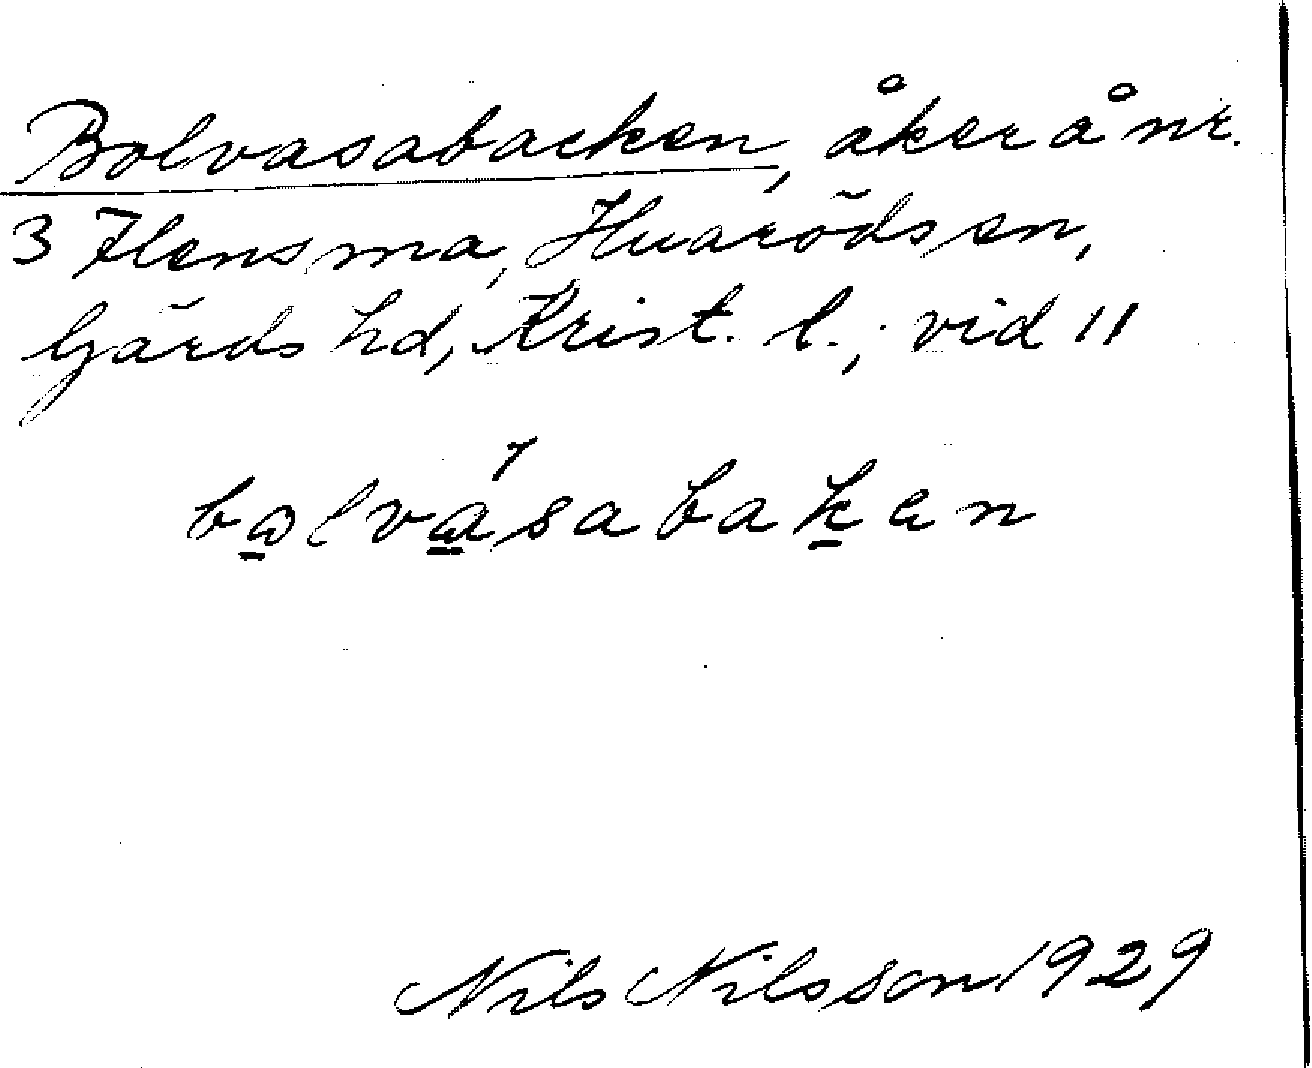 Bolvasabacken, åker å nr.
3 Flensma, Huaröds sn,
Gärds hd, Krist. l.; vid 11
bolvásabaken
Nils Nilsson 1929